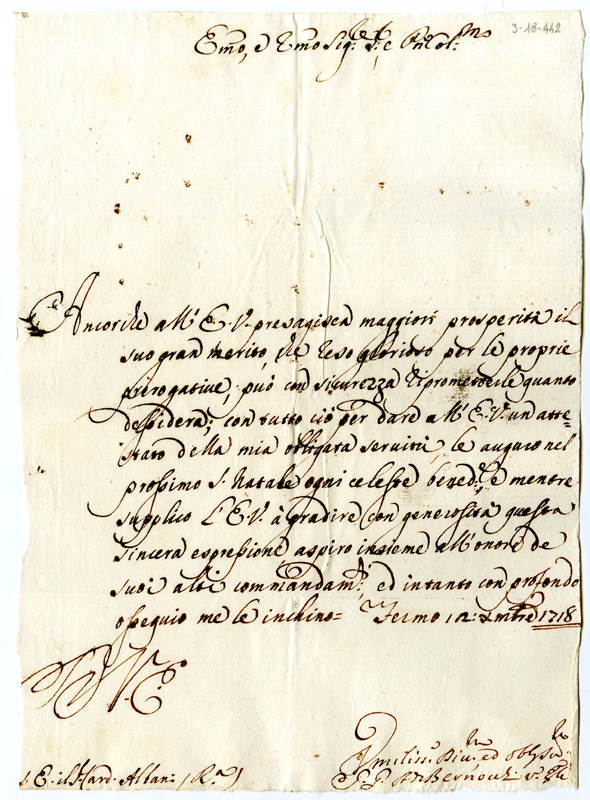 3-18-442
Emo, e Rmo Sig.
Ancorche all' E. V. presagisca maggiori prosperità il
suo gran merito, che reso glorioso per le proprie
prerogative, può con sicurezza ripromettersile quanto
desidera; con tutto ciò per dare all' E. V. un atte=
stato della mia obbligata servitù, le auguro nel
prossimo S. Natale ogni celeste bened.e, e mentre
supplico l' E. V. à gradire con generosità questa
sincera espressione aspiro insieme all' onore de
suoi alti commandam.ti, ed intanto con profondo
ossequio me le inchino= Fermo 12: Xmbre 1718
D V. E.
S. E. il S. Card. Albani (Ra)
Umiliss. Div. ed obl.